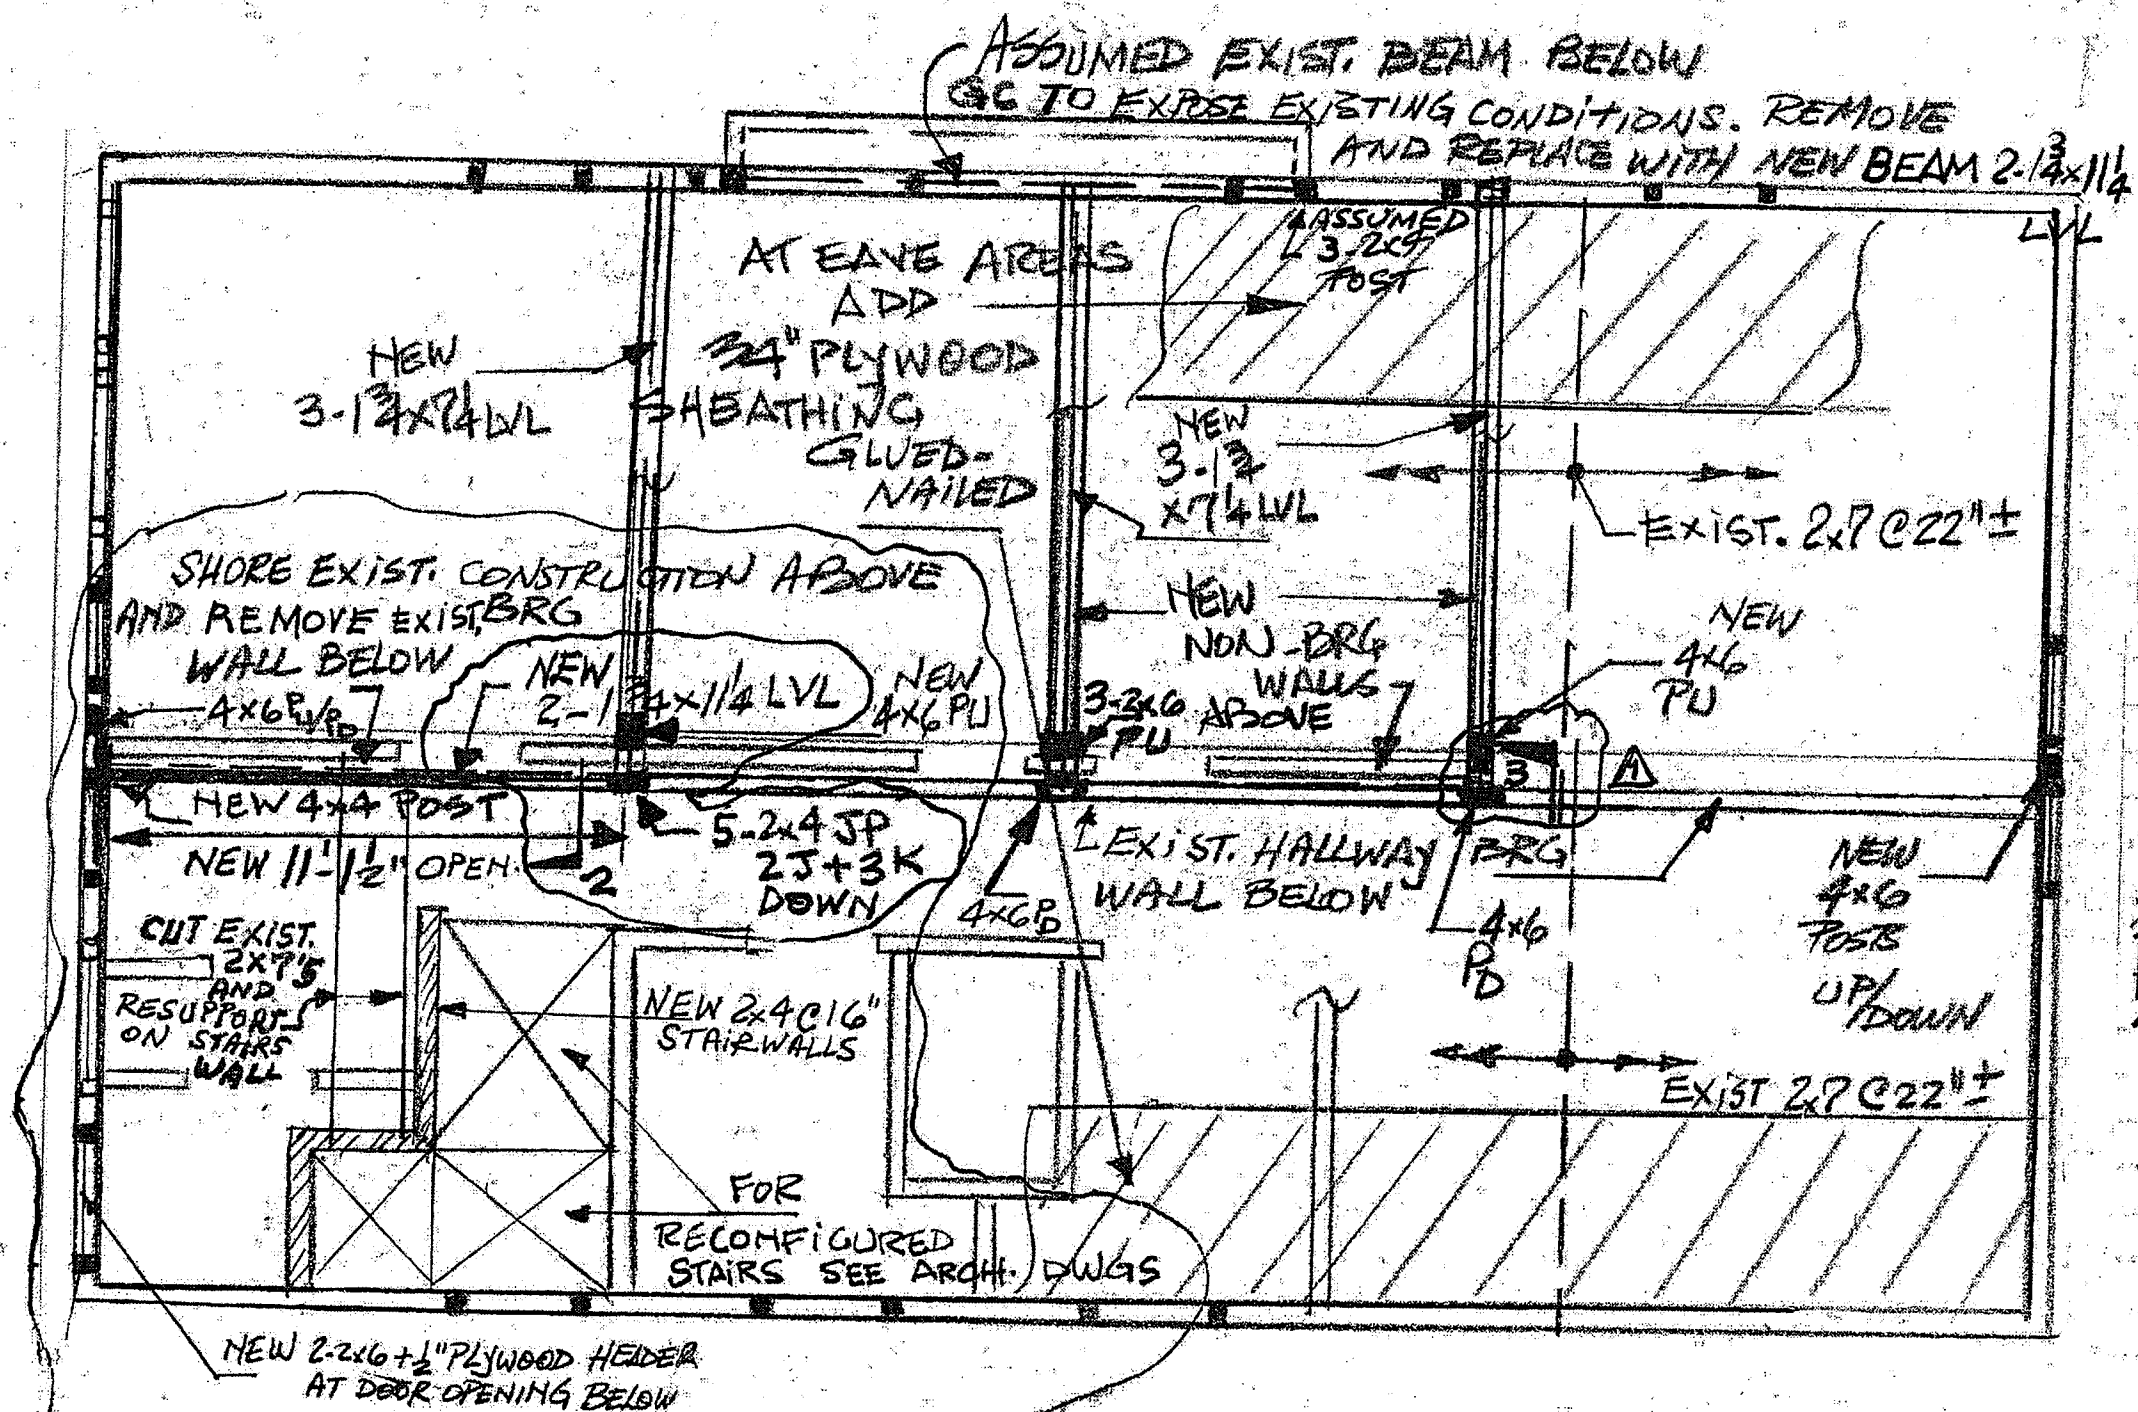 ASSUMED EXIST. BEAM BELOW
GC TO EXPOSE EXISTING CONDITIONS. REMOVE
AND REPLACE WITH NEW BEAM 2-1 3/4 x 11 1/4
LVL
ASSUMED
3-2x4
POST
AT EAVE AREAS
ADD
3/4" PLYWOOD
SHEATHING
GLUED-
NAILED
NEW
3-1 3/4 x 7 1/4 LVL
NEW
3-1 3/4
x 7 1/4 LVL
EXIST. 2x7 @ 22" ±
SHORE EXIST. CONSTRUCTION ABOVE
AND REMOVE EXIST. BRG
WALL BELOW
4x6 PU/PD
NEW
2-1 3/4 x 11 1/4 LVL
NEW
4x6 PU
3-2x6
PU
NEW
NON-BRG
WALLS
ABOVE
NEW
4x6
PU
3
1
NEW 4x4 POST
NEW 11'-1 1/2" OPEN.
2
5-2x4 JP
2J+3K
DOWN
4x6 PD
EXIST. HALLWAY
WALL BELOW
BRG
4x6
PD
NEW
4x6
POSTS
UP/
DOWN
CUT EXIST.
2x7'S
AND
RESUPPORT
ON STAIRS
WALL
NEW 2x4 @ 16"
STAIRWALLS
EXIST 2x7 @ 22" ±
FOR
RECONFIGURED
STAIRS SEE ARCH. DWGS
NEW 2-2x6 + 1/2" PLYWOOD HEADER
AT DOOR OPENING BELOW